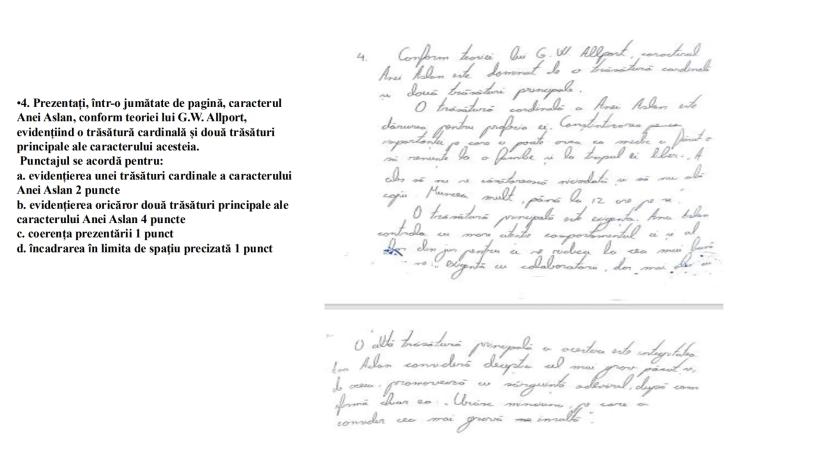 •4. Prezentați, într-o jumătate de pagină, caracterul
Anei Aslan, conform teoriei lui G.W. Allport,
evidențiind o trăsătură cardinală și două trăsături
principale ale caracterului acesteia.
Punctajul se acordă pentru:
a. evidențierea unei trăsături cardinale a caracterului
Anei Aslan 2 puncte
b. evidențierea oricăror două trăsături principale ale
caracterului Anei Aslan 4 puncte
c. coerența prezentării 1 punct
d. încadrarea în limita de spațiu precizată 1 punct
4. Conform teoriei lui G. W. Allport, caracterul
Anei Aslan este dominat de o trăsătură cardinală
și două trăsături principale.
O trăsătură cardinală a Anei Aslan este
dăruirea pentru profesia ei.
pe care o poate avea ca medic a făcut-o
să renunțe la o familie și la timpul ei liber. A
ales să nu se căsătorească niciodată și să nu aibă
copii. Muncea mult, până la 12 ore pe zi.
O trăsătură principală este exigența. Ana Aslan
controla cu mare atenție comportamentul ei și al
din jur pentru a se ridica la cea mai
exigentă cu colaboratorii, dar mai
O altă trăsătură principală a acesteia este integritatea.
Aslan consideră cel mai grav păcat
promovează cu adevărul, după cum
chiar ea: „Urăsc minciuna, pe care o
consider cea mai gravă insultă”.